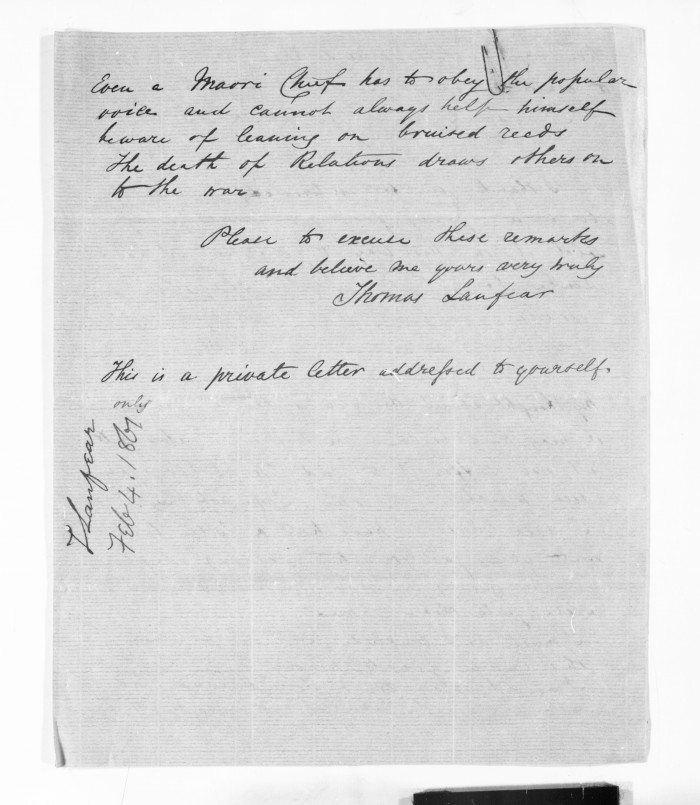 Even a Maori Chief has to obey the popular
voice and cannot always help himself
beware of leaning on bruised reeds
The death of Relations draws others on
to the war
Please to excuse these remarks
and believe me yours very truly
Thomas Lanfear
This is a private letter addressed to yourself.
only
T Lanfear
Feb 4. 1861